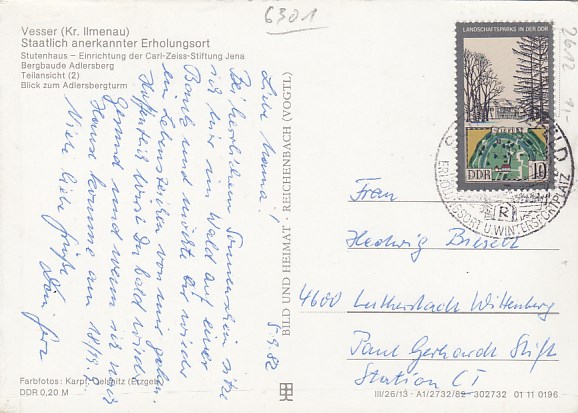 6301
Vesser (Kr. Ilmenau)
Staatlich anerkannter Erholungsort
Stutenhaus – Einrichtung der Carl-Zeiss-Stiftung Jena
Bergbaude Adlersberg
Teilansicht (2)
Blick zum Adlersbergturm
5.9.82
Liebe Mama!
Bei herrlichem Sonnenschein sitze
ich hier im Wald auf einer
Bank und möchte dir wieder
ein Lebenszeichen von mir geben.
Hoffentlich wirst Du bald wieder
gesund und wenn ich nach
Hause komme am 18./19.
Viele liebe Grüße
Dein
BILD UND HEIMAT · REICHENBACH (VOGTL)
LANDSCHAFTSPARKS IN DER DDR
DDR
10
ERHOLUNGSORT U. WINTERSPORTPLATZ
R
2612
1,-
Frau
Hedwig
4600 Lutherstadt Wittenberg
Paul Gerhardt Stift
Station C I
Farbfotos: Karpf, Oelsnitz (Erzgeb.)
DDR 0,20 M
III/26/13 - A1/2732/82 302732 01 11 0196